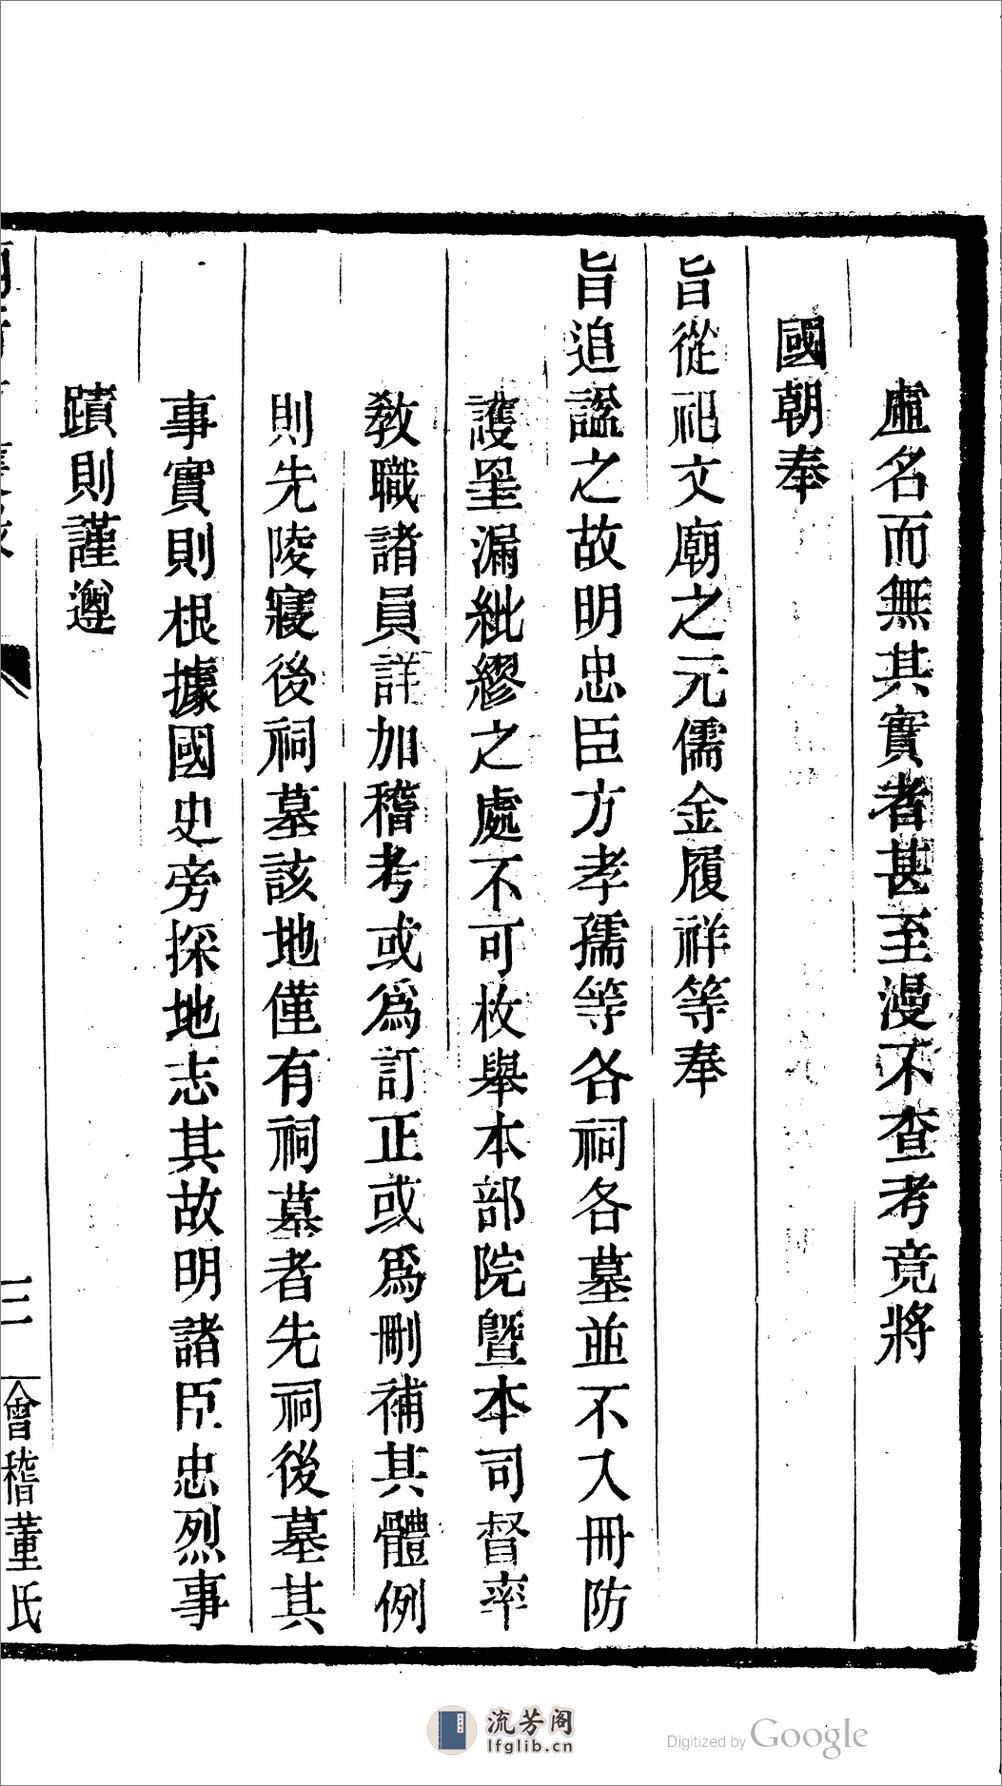 虛名而無其實者甚至漫不查考竟將
國朝奉
旨從祀文廟之元儒金履祥等奉
旨追諡之故明忠臣方孝孺等各祠各墓並不入冊防
護罣漏紕繆之處不可枚舉本部院曁本司督率
教職諸員詳加稽考或爲訂正或爲刪補其體例
則先陵寢後祠墓該地僅有祠墓者先祠後墓其
事實則根據國史旁採地志其故明諸臣忠烈事
蹟則謹遵
三
會稽董氏
流芳阁
lfglib.cn
Digitized by Google